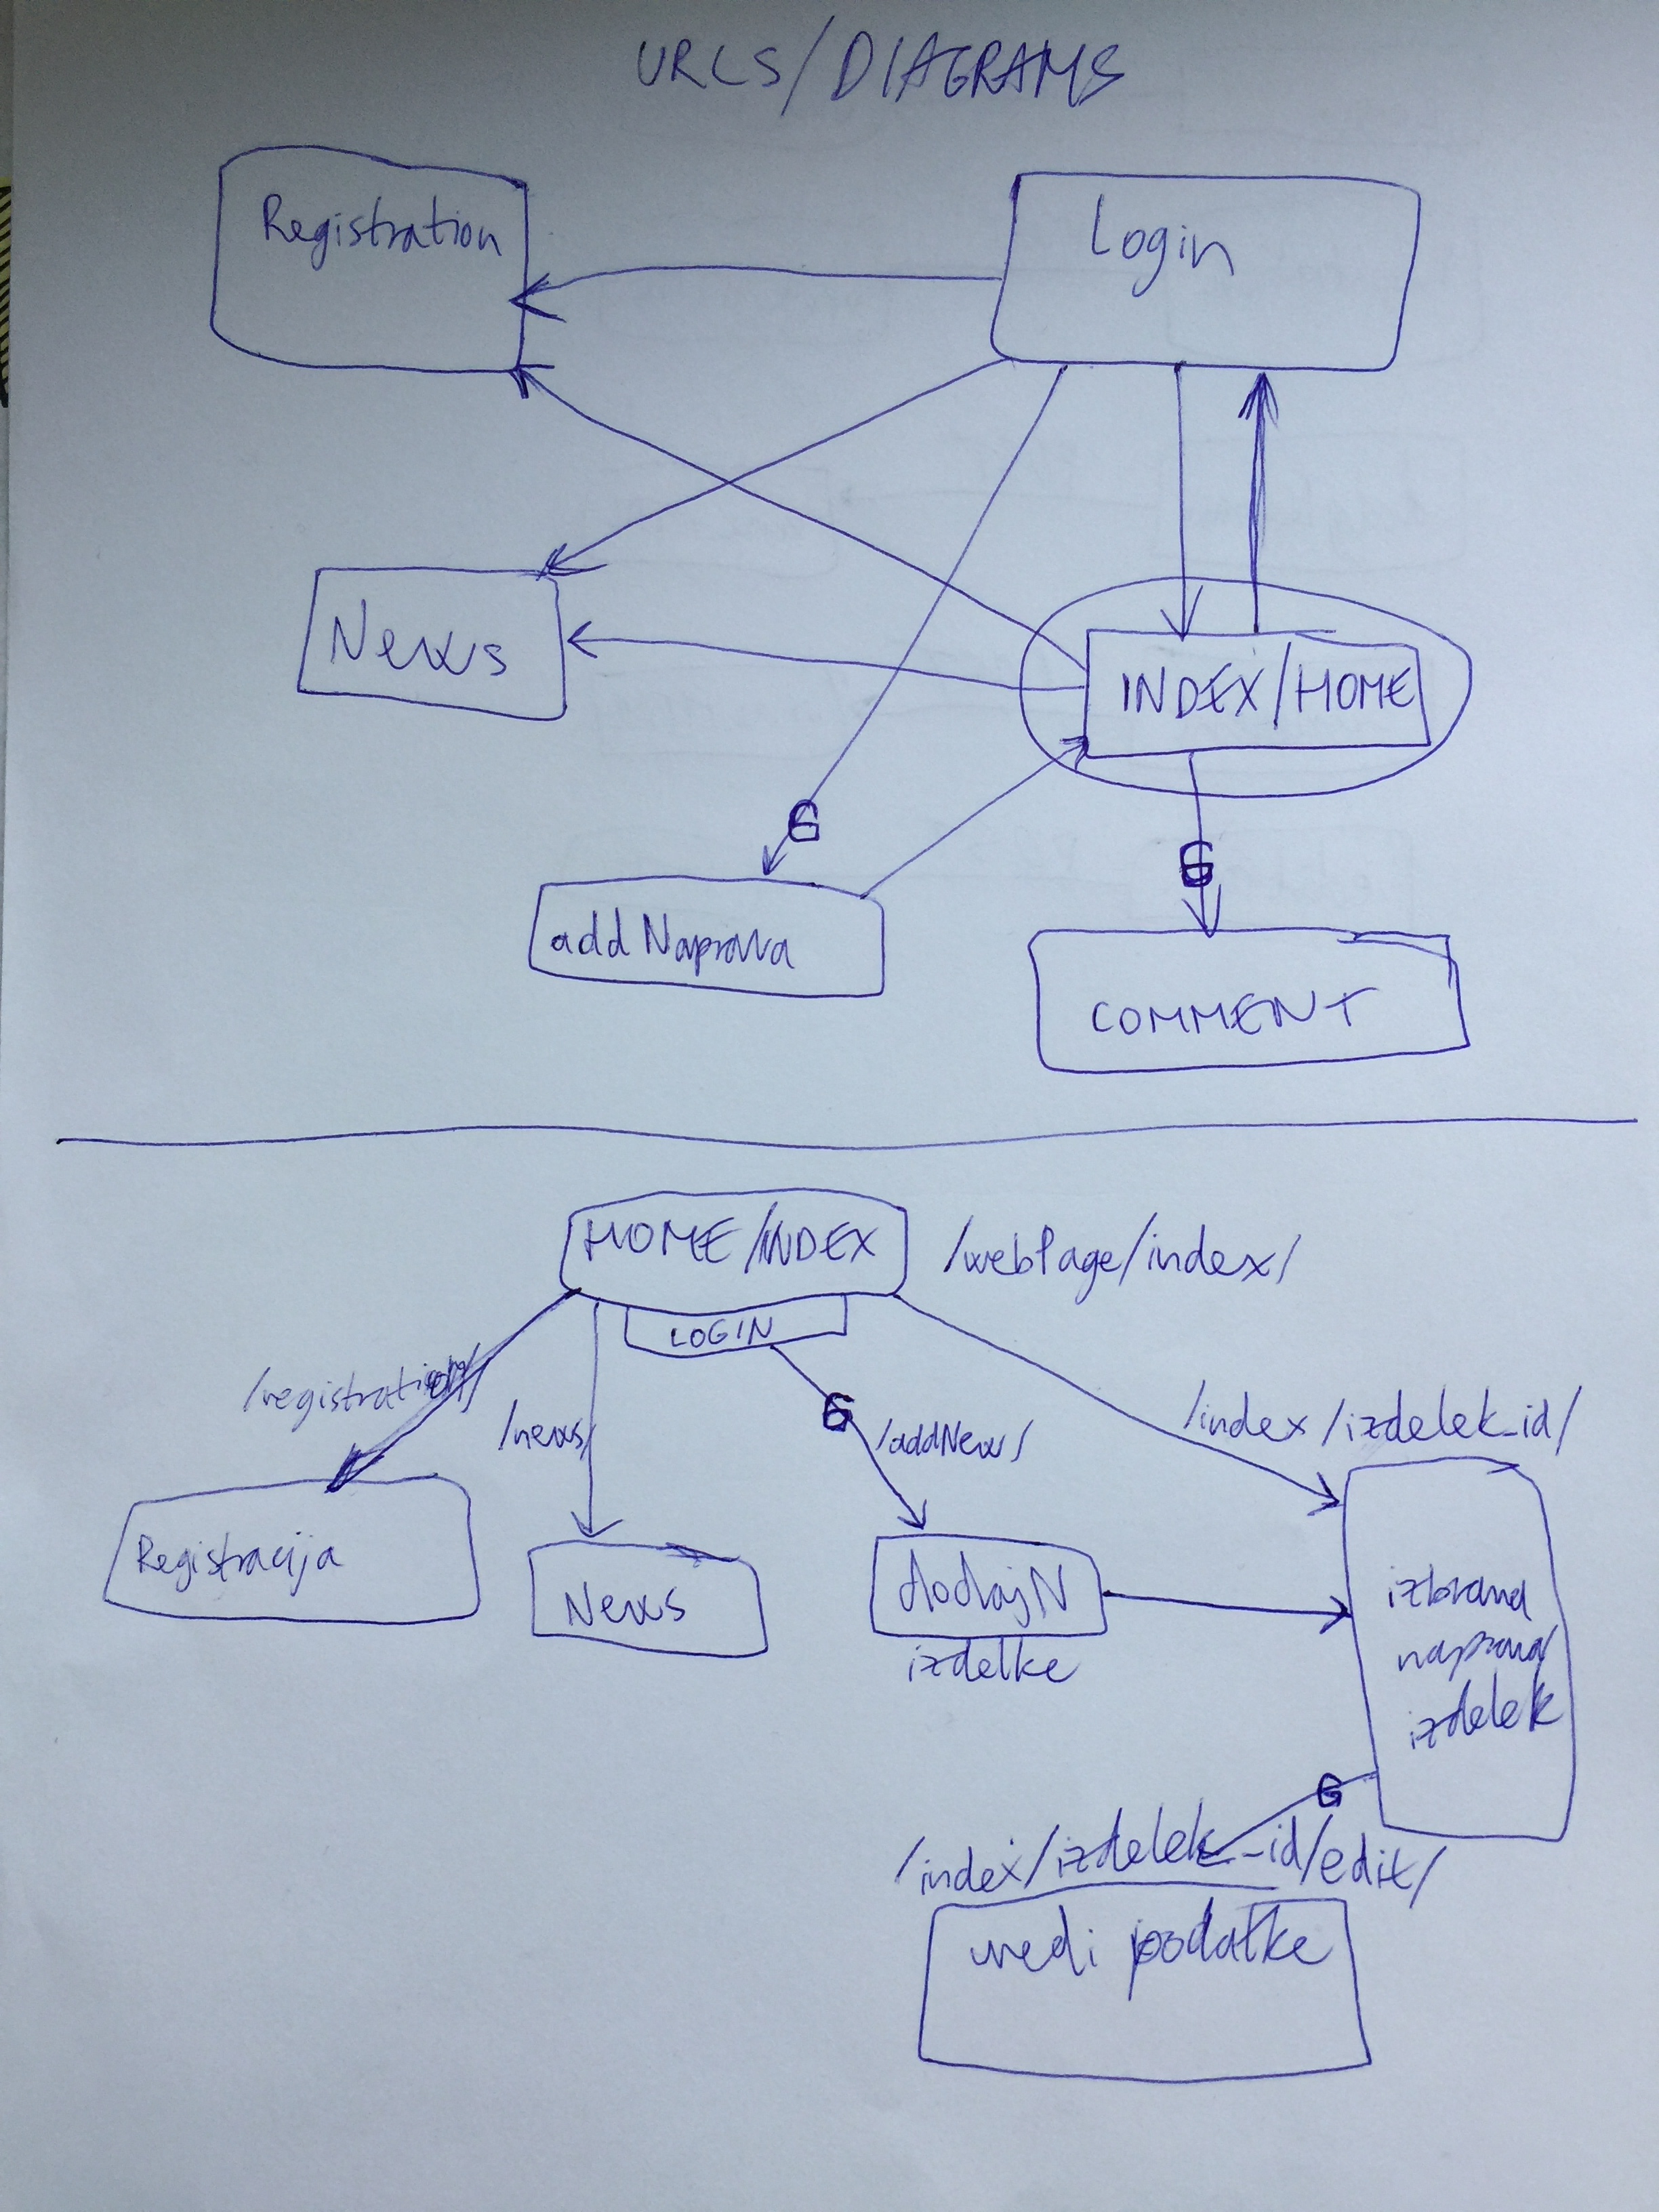 URLS/DIAGRAMS
Registration
Login
News
INDEX/HOME
addNaprava
COMMENT
HOME/INDEX
/webPage/index/
LOGIN
/registration/
/news/
/addNew/
/index/izdelek_id/
Registracija
News
dodajN
izdelke
izbrana
naprava/
izdelek
/index/izdelek_id/edit/
uredi podatke